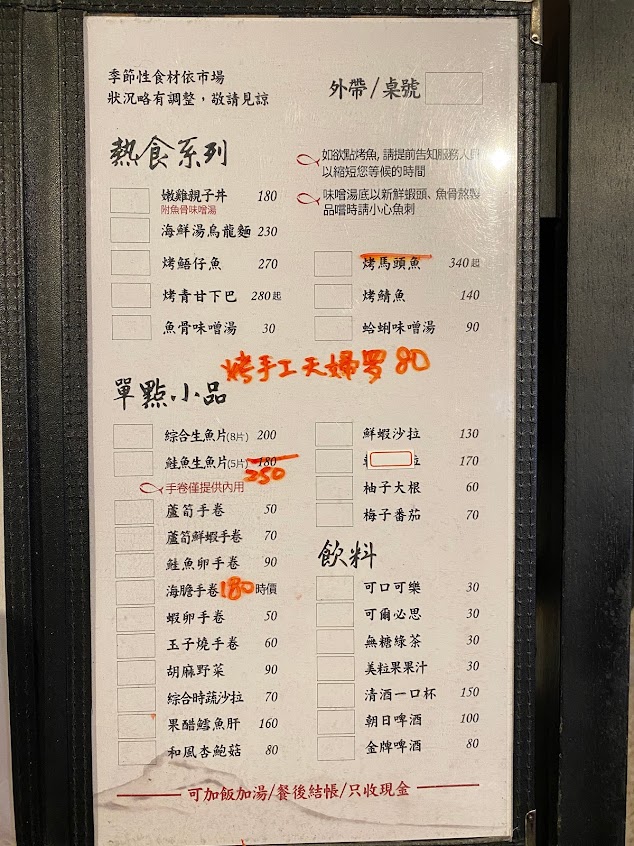 季節性食材依市場
狀況略有調整，敬請見諒
外帶/桌號
熱食系列
如欲點烤魚,請提前告知服務人員
以縮短您等候的時間
味噌湯底以新鮮蝦頭、魚骨熬製
品嚐時請小心魚刺
嫩雞親子丼 180
附魚骨味噌湯
海鮮湯烏龍麵 230
烤鯃仔魚 270
烤馬頭魚 340起
烤青甘下巴 280起
烤鯖魚 140
魚骨味噌湯 30
蛤蜊味噌湯 90
烤手工天婦罗 80
單點小品
綜合生魚片(8片) 200
鮭魚生魚片(5片) 180
250
手卷僅提供內用
蘆筍手卷 50
蘆筍鮮蝦手卷 70
鮭魚卵手卷 90
海膽手卷 180 時價
蝦卵手卷 50
玉子燒手卷 60
胡麻野菜 90
綜合時蔬沙拉 70
果醋鱈魚肝 160
和風杏鮑菇 80
鮮蝦沙拉 130
170
柚子大根 60
梅子番茄 70
飲料
可口可樂 30
可爾必思 30
無糖綠茶 30
美粒果果汁 30
清酒一口杯 150
朝日啤酒 100
金牌啤酒 80
可加飯加湯/餐後結帳/只收現金